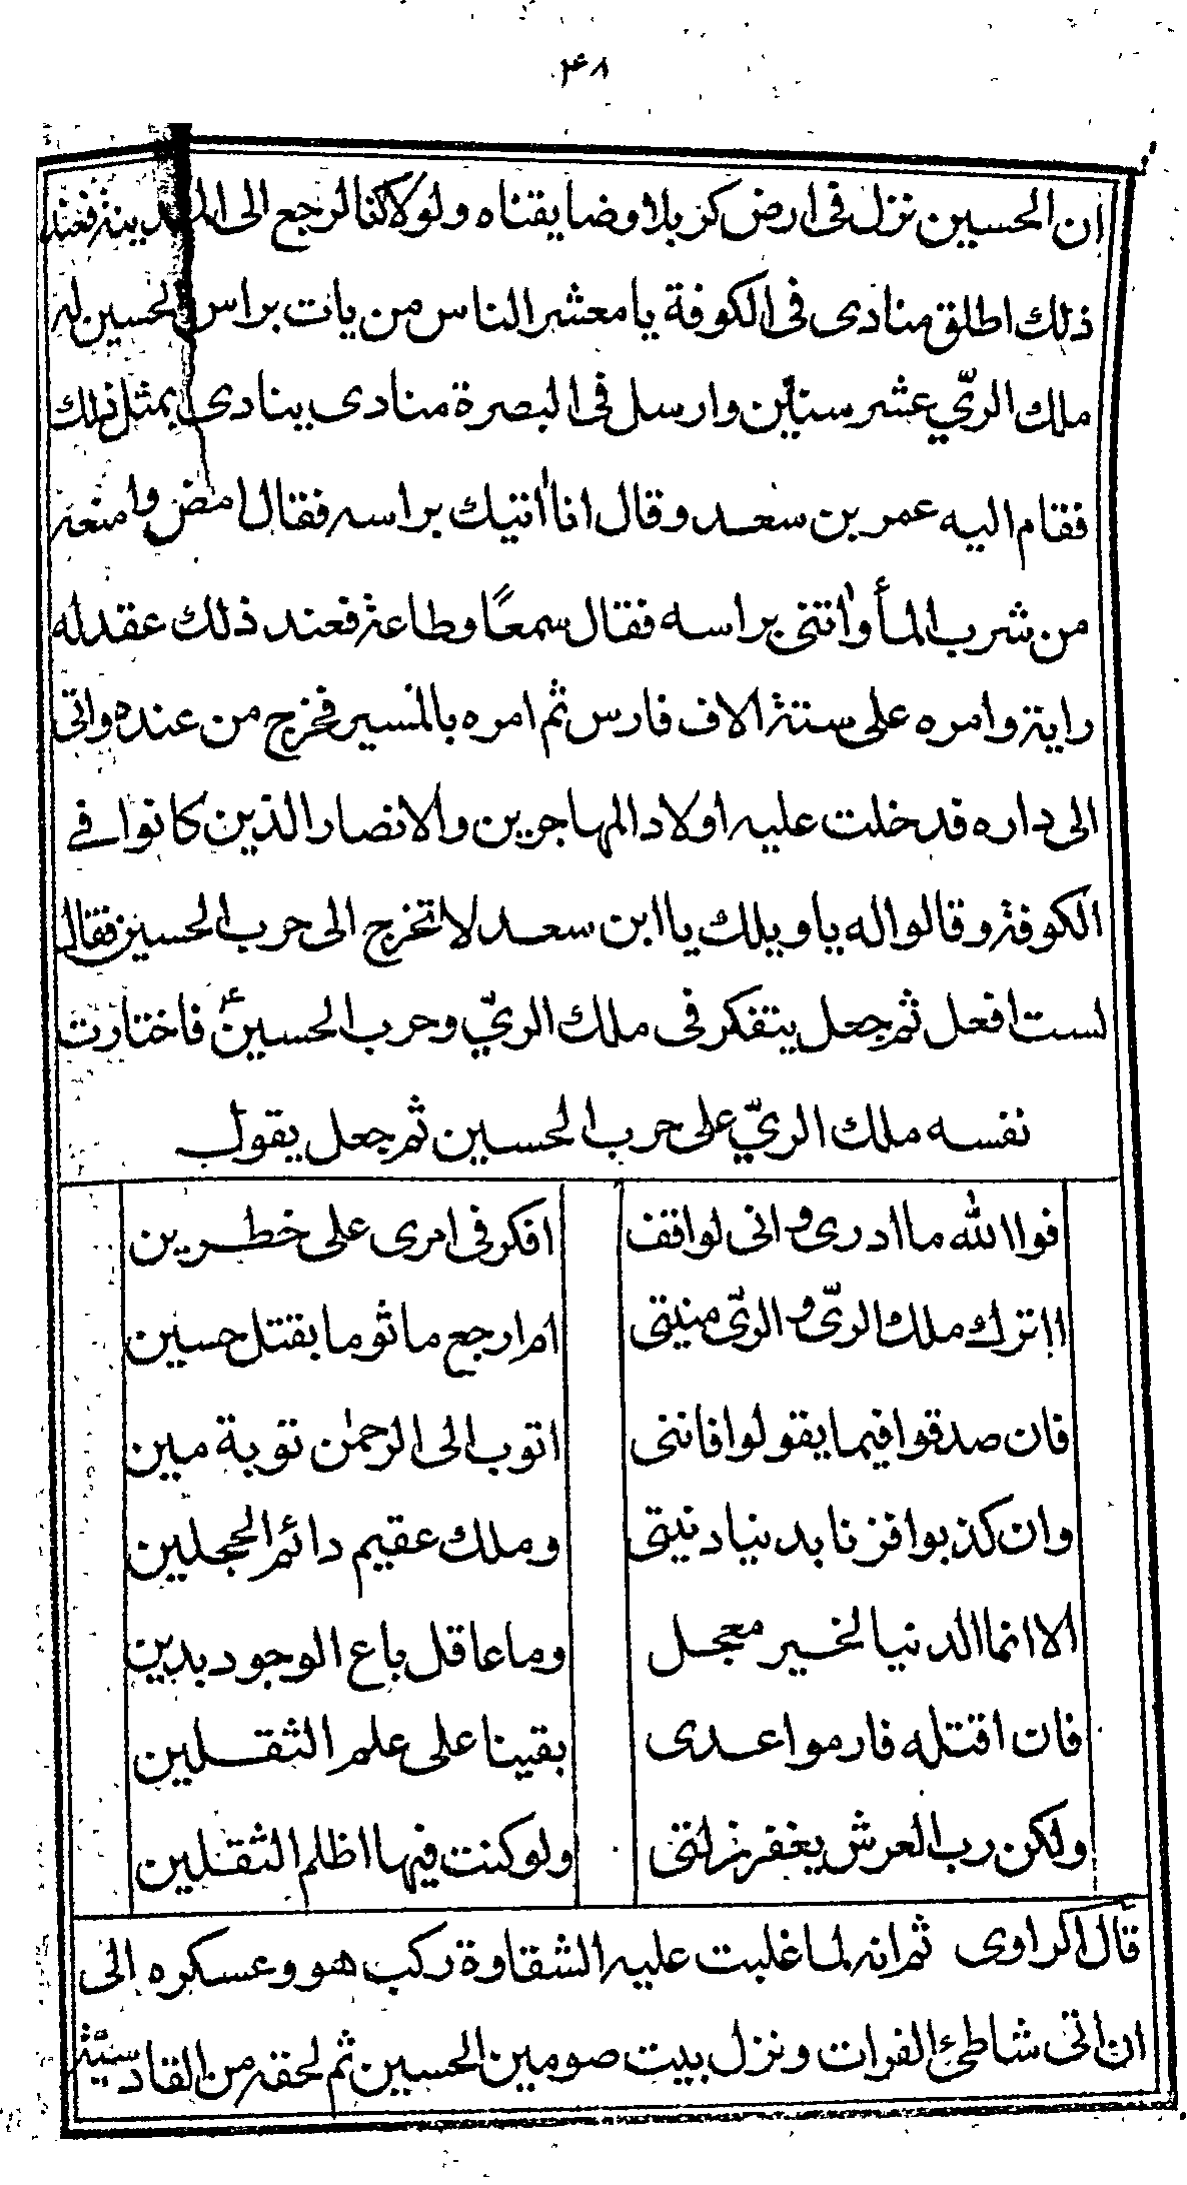 ۴۸
ان الحسين نزل فى ارض كربلا وضايقناه ولولا كنا لرجع الى المدينة فعند
ذلك اطلق منادى فى الكوفة يا معشر الناس من يات براس الحسين له
ملك الرىّ عشر سنين وارسل فى البصرة منادى ينادى بمثل ذلك
فقام اليه عمر بن سعد وقال انا اتيك براسه فقال امض وامنعه
من شرب المأ واتنى براسه فقال سمعًا وطاعة فعند ذلك عقد له
راية وامره على ستة الاف فارس ثم امره بالمسير فخرج من عنده واتى
الى داره فدخلت عليه اولاد المهاجرين والانصار الذين كانوا فے
الكوفة وقالوا له يا ويلك يا ابن سعد لا تخرج الى حرب الحسين فقال
لست افعل ثم جعل يتفكر فى ملك الرىّ وحرب الحسينؑ فاختارت
نفسه ملك الرىّ على حرب الحسين ثم جعل يقول
فوا الله ما ادرى و انى لواقف افكر فى امرى على خطرين
ااترك ملك الرىّ و الرىّ منيتى ام ارجع ماثوما بقتل حسين
فان صدقوا فيما يقولوا فاننى اتوب الى الرحمٰن توبة مين
وان كذبوا فزنا بدنيا دنيتى وملك عقيم دائم الحجلين
الا انما الدنيا لخير معجل وما عاقل باع الوجود بدين
فان اقتله فارموا عدى بقينا على علم الثقلين
ولكن رب العرش يغفر زلتى ولو كنت فيها اظلم الثقلين
قال الراوى ثم انه لما غلبت عليه الشقاوة ركب هو وعسكره الى
ان اتى شاطئ الفرات ونزل بيت صومين الحسين ثم لحقه من القادسيّة